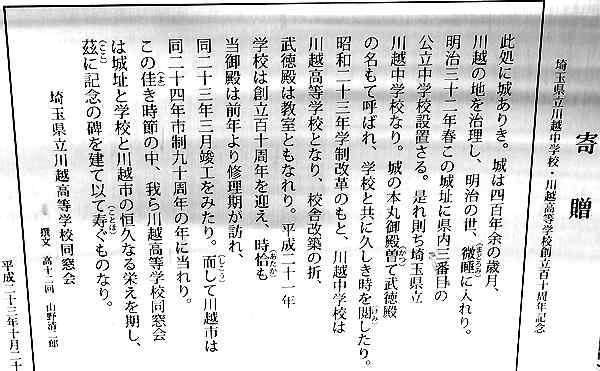 寄贈
埼玉県立川越中学校・川越高等学校創立百十周年記念
此処に城ありき。城は四百年余の歳月、
川越の地を治理し、明治の世、微睡に入れり。
明治三十二年春この城址に県内三番目の
公立中学校設置さる。是れ則ち埼玉県立
川越中学校なり。城の本丸御殿曽て武徳殿
の名もて呼ばれ、学校と共に久しき時を閲したり。
昭和二十三年学制改革のもと、川越中学校は
川越高等学校となり、校舎改築の折、
武徳殿は教室ともなれり。平成二十一年
学校は創立百十周年を迎え、時恰も
当御殿は前年より修理期が訪れ、
同二十三年三月竣工をみたり。而して川越市は
同二十四年市制九十周年の年に当れり。
この佳き時節の中、我ら川越高等学校同窓会
は城址と学校と川越市の恒久なる栄えを期し、
茲に記念の碑を建て以て寿ぐものなり。
埼玉県立川越高等学校同窓会
撰文 高十二回 山野清二郎
平成二十三年十月二十